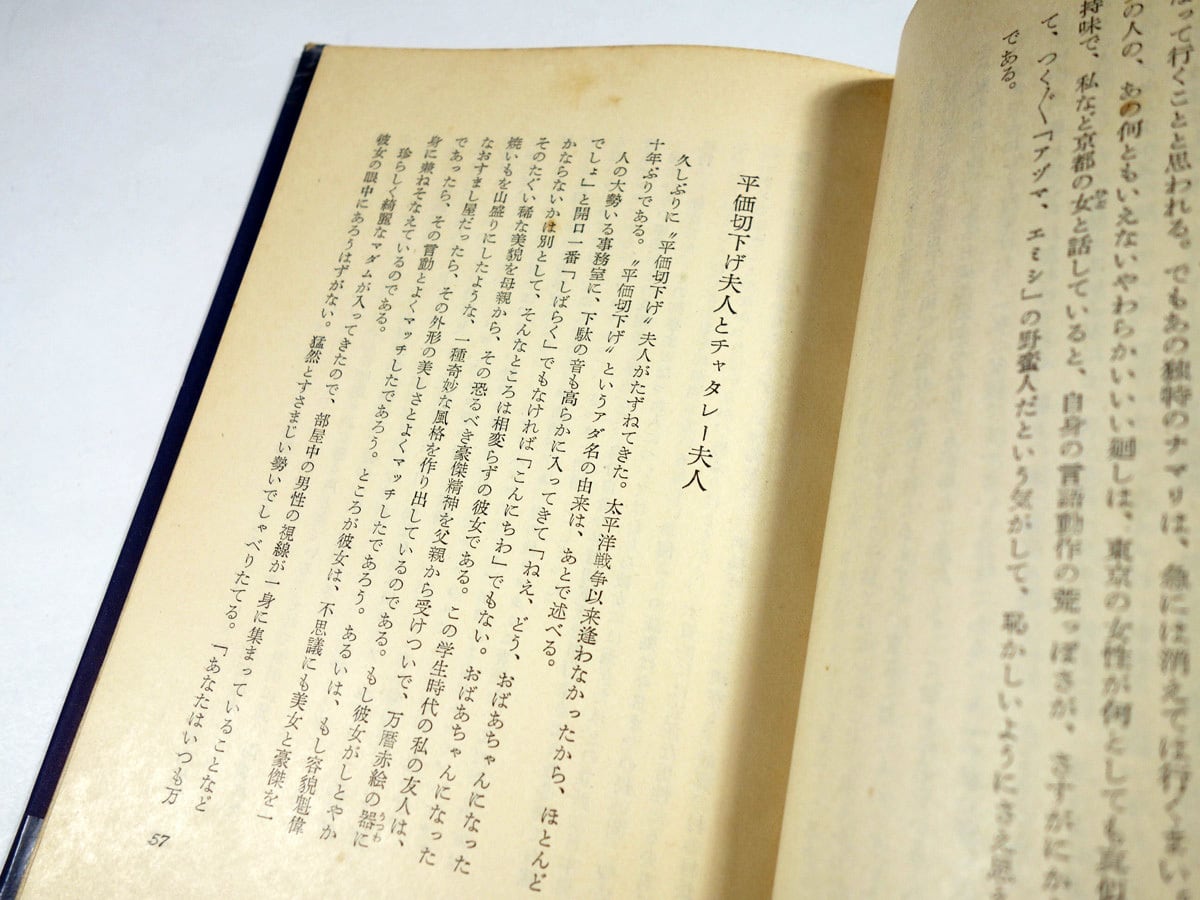 なって行くことと思われる。でもあの独特のナマリは、急には消えては行くまい
の人の、あの何ともいえないやわらかいいい廻しは、東京の女性が何としても真似
持味で、私など京都の女と話していると、自身の言語動作の荒っぽさが、さすがにか
て、つくぐ〱「アヅマ、エミシ」の野蛮人だという気がして、恥かしいようにさえ思え
である。
平価切下げ夫人とチャタレー夫人
久しぶりに〝平価切下げ〟夫人がたずねてきた。太平洋戦争以来逢わなかったから、ほとんど
十年ぶりである。〝平価切下げ〟というアダ名の由来は、あとで述べる。
人の大勢いる事務室に、下駄の音も高らかに入ってきて「ねえ、どう、おばあちゃんになった
でしょ」と開口一番「しばらく」でもなければ「こんにちわ」でもない。おばあちゃんになった
かならないかは別として、そんなところは相変らずの彼女である。この学生時代の私の友人は、
そのたぐい稀な美貌を母親から、その恐るべき豪傑精神を父親から受けついで、万暦赤絵の器に
焼いもを山盛りにしたような、一種奇妙な風格を作り出しているのである。もし彼女がしとやか
なおすまし屋だったら、その外形の美しさとよくマッチしたであろう。あるいは、もし容貌魁偉
であったら、その言動とよくマッチしたであろう。ところが彼女は、不思議にも美女と豪傑を一
身に兼ねそなえているのである。
珍らしく綺麗なマダムが入ってきたので、部屋中の男性の視線が一身に集まっていることなど
彼女の眼中にあろうはずがない。猛然とすさまじい勢いでしゃべりたてる。「あなたはいつも万
57